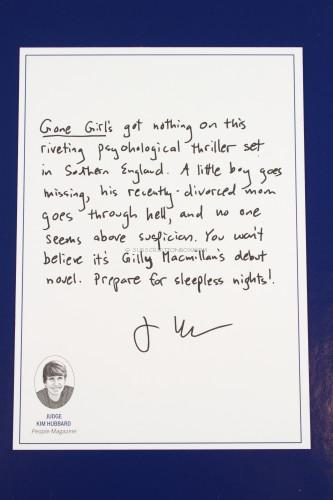 Gone Girl's got nothing on this
riveting psychological thriller set
in Southern England. A little boy goes
missing, his recently-divorced mom
goes through hell, and no one
seems above suspicion. You won't
believe it's Gilly Macmillan's debut
novel. Prepare for sleepless nights!
JUDGE
KIM HUBBARD
People Magazine